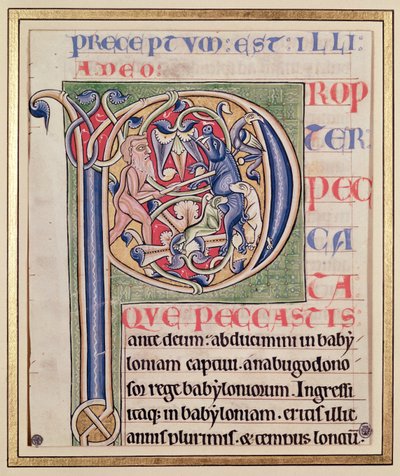 PRECEPTVM : EST : ILLI :
A DEO :
PROP
TER
PEC
CA
TA
QVE PECCASTIS :
ante deum : abducemini in baby
loniam captiui . a nabugodono
sor rege babyloniorum . Ingressi
itaq; in babyloniam . eritis illic
annis plurimis . & tempus longū .